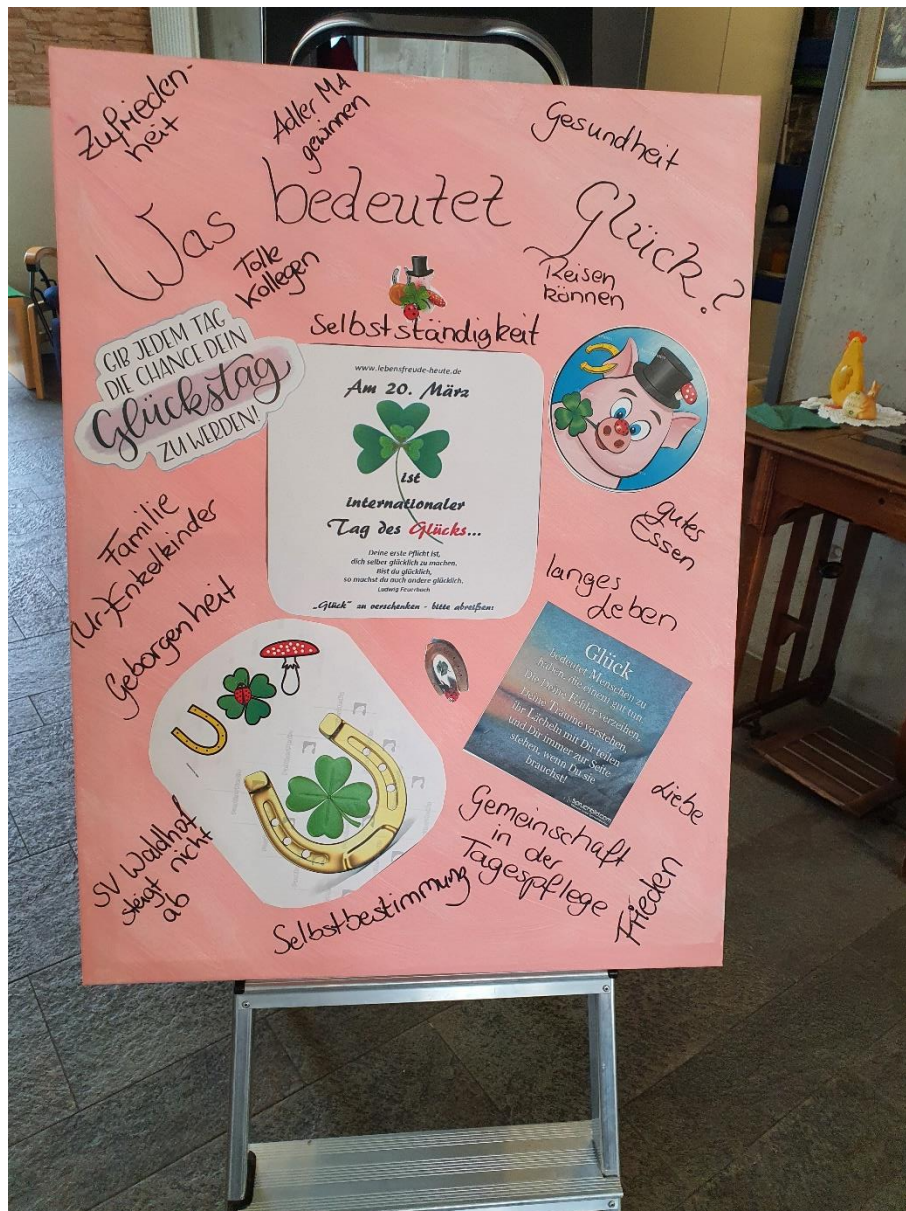 Zufrieden-
heit
Adler MA
gewinnen
Gesundheit
Was bedeutet Glück?
Tolle
Kollegen
Reisen
können
Selbstständigkeit
GIB JEDEM TAG
DIE CHANCE DEIN
Glückstag
ZU WERDEN!
www.lebensfreude-heute.de
Am 20. März
ist
internationaler
Tag des Glücks...
Deine erste Pflicht ist,
dich selber glücklich zu machen.
Bist du glücklich,
so machst du auch andere glücklich.
Ludwig Feuerbach
„Glück" zu verschenken - bitte abreißen:
gutes
Essen
Familie
(Ur-)Enkelkinder
Geborgenheit
langes
Leben
Glück
bedeutet Menschen zu
haben, die einem gut tun,
Dir Deine Fehler verzeihen,
Deine Träume verstehen,
ihr Lächeln mit Dir teilen
und Dir immer zur Seite
stehen, wenn Du sie
brauchst!
Liebe
SV Waldhof
steigt nicht
ab
Gemeinschaft
in der
Tagespflege
Selbstbestimmung
Frieden